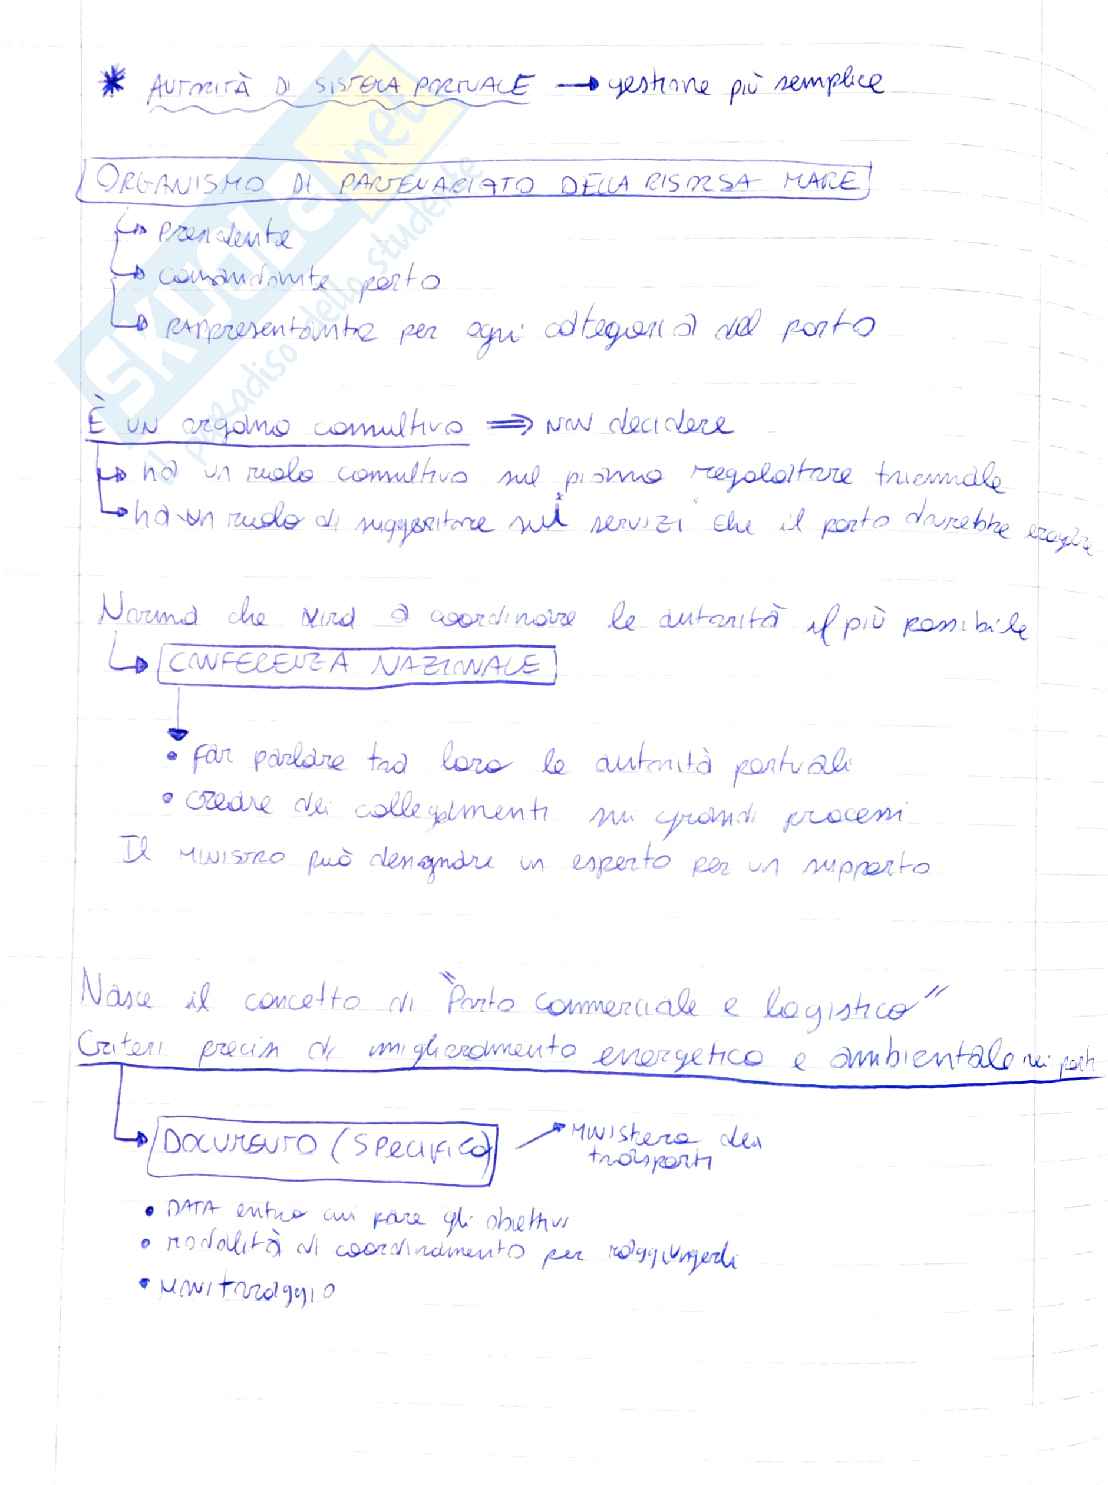 * AUTORITÀ DI SISTEMA PORTUALE → gestione più semplice
ORGANISMO DI PARTENARIATO DELLA RISORSA MARE
↳ presidente
↳ comandante porto
↳ RAPPresentante per ogni categoria del porto
È UN organo consultivo ⇒ NON decidere
↳ ha un ruolo consultivo sul piano regolatore triennale
↳ ha un ruolo di suggeritore sui servizi che il porto dovrebbe erogare
Norma che mira a coordinare le autorità il più possibile
↳ CONFERENZA NAZIONALE
• far parlare tra loro le autorità portuali
• creare dei collegamenti su grandi processi
Il MINISTRO può designare un esperto per un supporto
Nasce il concetto di "Porto commerciale e logistico"
Criteri precisi di miglioramento energetico e ambientale nei porti
↳ DOCUMENTO (SPECIFICO) → MINISTERO dei
trasporti
• DATA entro cui fare gli obiettivi
• MODALITÀ di coordinamento per raggiungerli
• MONITORAGGIO
SKUOLA.net
il paradiso dello studente